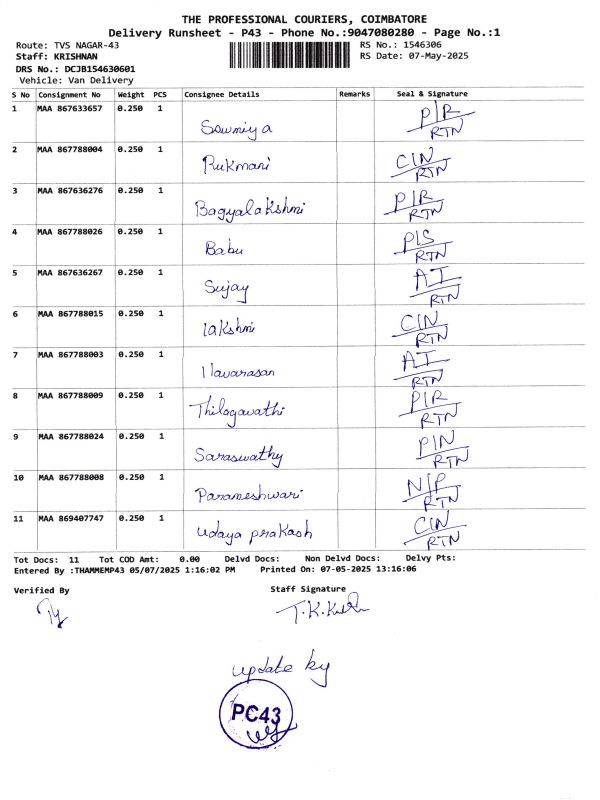 THE PROFESSIONAL COURIERS, COIMBATORE
Delivery Runsheet - P43 - Phone No.:9047080280 - Page No.:1
Route: TVS NAGAR-43 RS No.: 1546306
Staff: KRISHNAN RS Date: 07-May-2025
DRS No.: DCJB154630601
Vehicle: Van Delivery
S No Consignment No Weight PCS Consignee Details Remarks Seal & Signature
1 MAA 867633657 0.250 1 Sowmiya P/R RTN
2 MAA 867788004 0.250 1 Rukmani C/N RTN
3 MAA 867636276 0.250 1 Bagyalakshmi P/R RTN
4 MAA 867788026 0.250 1 Babu P/S RTN
5 MAA 867636267 0.250 1 Sujay AI RTN
6 MAA 867788015 0.250 1 lakshmi C/N RTN
7 MAA 867788003 0.250 1 Ilavarasan AI RTN
8 MAA 867788009 0.250 1 Thilagavathi P/R RTN
9 MAA 867788024 0.250 1 Saraswathy P/N RTN
10 MAA 867788008 0.250 1 Parameshwari N/P RTN
11 MAA 869407747 0.250 1 udaya prakash C/N RTN
Tot Docs: 11 Tot COD Amt: 0.00 Delvd Docs: Non Delvd Docs: Delvy Pts:
Entered By :THAMMEMP43 05/07/2025 1:16:02 PM Printed On: 07-05-2025 13:16:06
Verified By Staff Signature
update by
PC43